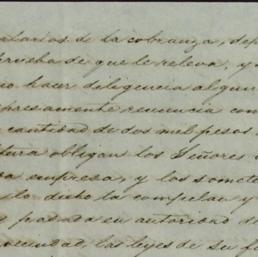 alarios de la cobranza, dep
prueba de que le releva, y
no hacer diligencia algun
espresamente renuncia con
cantidad de dos mil pesos
tura obligan los Señores
empresa, y los somete
lo dicho la compelan y
pasada en autoridad de
las leyes de su fa